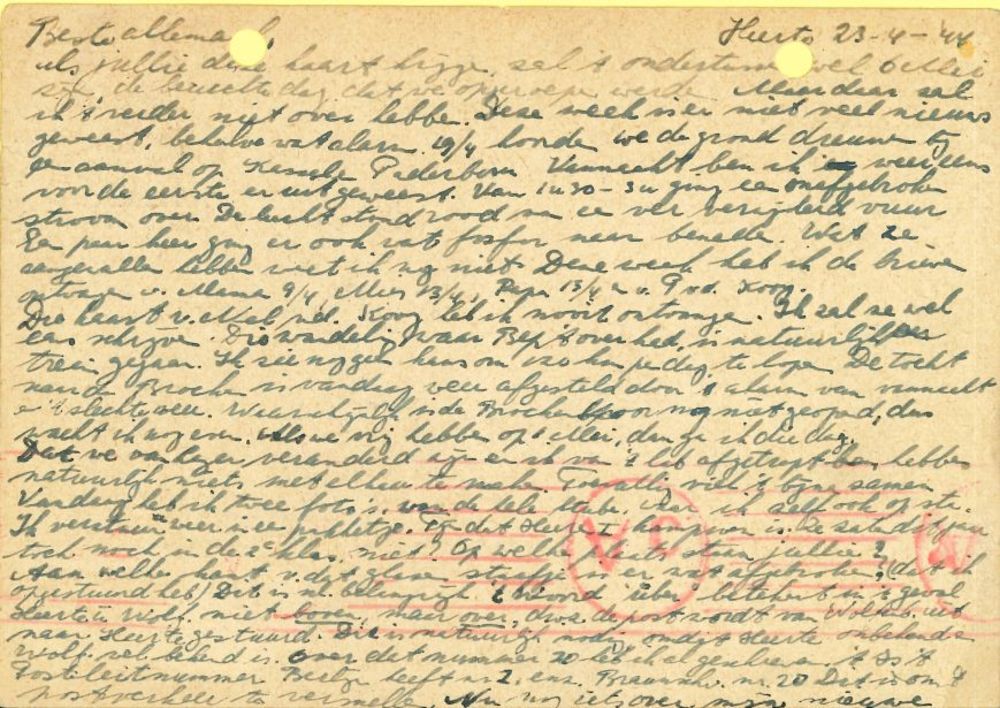 Beste allemaal, Heerte 23-4-'44
als jullie deze kaart krijge, sal 't ondertussen wel 6 Mei
sijn, de beruchte dag, dat we opgeroepe werde. Maar daar sal
ik 't verder niet over hebbe. Dese week is er niet veel nieuws
geweest, behalve wat alarm. 19/4 hoorde we de grond dreunen bij
de aanval op Kassel Paderborn. Vannacht ben ik er weer eens
voor de eerste er uit geweest. Van 1u30 - 3u ging ee onafgebroke
stroom over. De lucht stond rood van ee ver verwijderd vuur
Ee paar keer ging er ook wat fosfor naar benede. Wat ze
aangevalle hebbe weet ik nog niet. Deze week heb ik de brieve
ontvange v. Mama 9/4, Mies 13/4, Papa 13/4 e v. P v.d. Koog.
Die kaart v. Nel v.d. Koog heb ik nooit ontvange. Ik zal ze wel
eens schrijve. Die wandeling waar Bep 't over had, is natuurlijk per
trein gegaan. Ik zie nog gee kans om 120 km pe dag te lope. De tocht
naar de Brocke is vandaag weer afgesteld door 't alarm van vannacht
e 't slechte weer. Waarschijnlijk is de Brocke spoor nog niet geopend, dus
wacht ik nog even. Als we vrij hebbe op 1 Mei, dan ga ik die dag.
Dat we van lager veranderd zijn en ik van 't bed afgetrapt ben hebbe
natuurlijk niets met elkaar te make. Toevallig viel 't bijna samen
Vandaag heb ik twee foto's van de hele stube, waar ik zelf ook op sta.
Ik verstuur weer in ee pakketje. die zat dit jaar
toch noch in de 2e klas, niet? Op welke plaats staan jullie?
Aan welke kant v. dat glaze staafje is er wat afgebroke? (dat ik
opgestuurd heb) Dit is nl. belangrijk 't woord über beteken in 't geval
Heerte ü Wolf. niet boven, maar over, dwz de post wordt van Wolfb. uit
naar Heerte gestuurd. Dit is natuurlijk nodig omdat Heerte onbekend e
Wolf. wel bekend is. Over dat nummer 20 heb ik al geschreve. 't Is 't
Postleitnummer België heeft nr. 2, enz. Braunschw. nr. 20 Dit is om 't
postverkeer te versnelle. Nu nog iets over mijn nieuwe